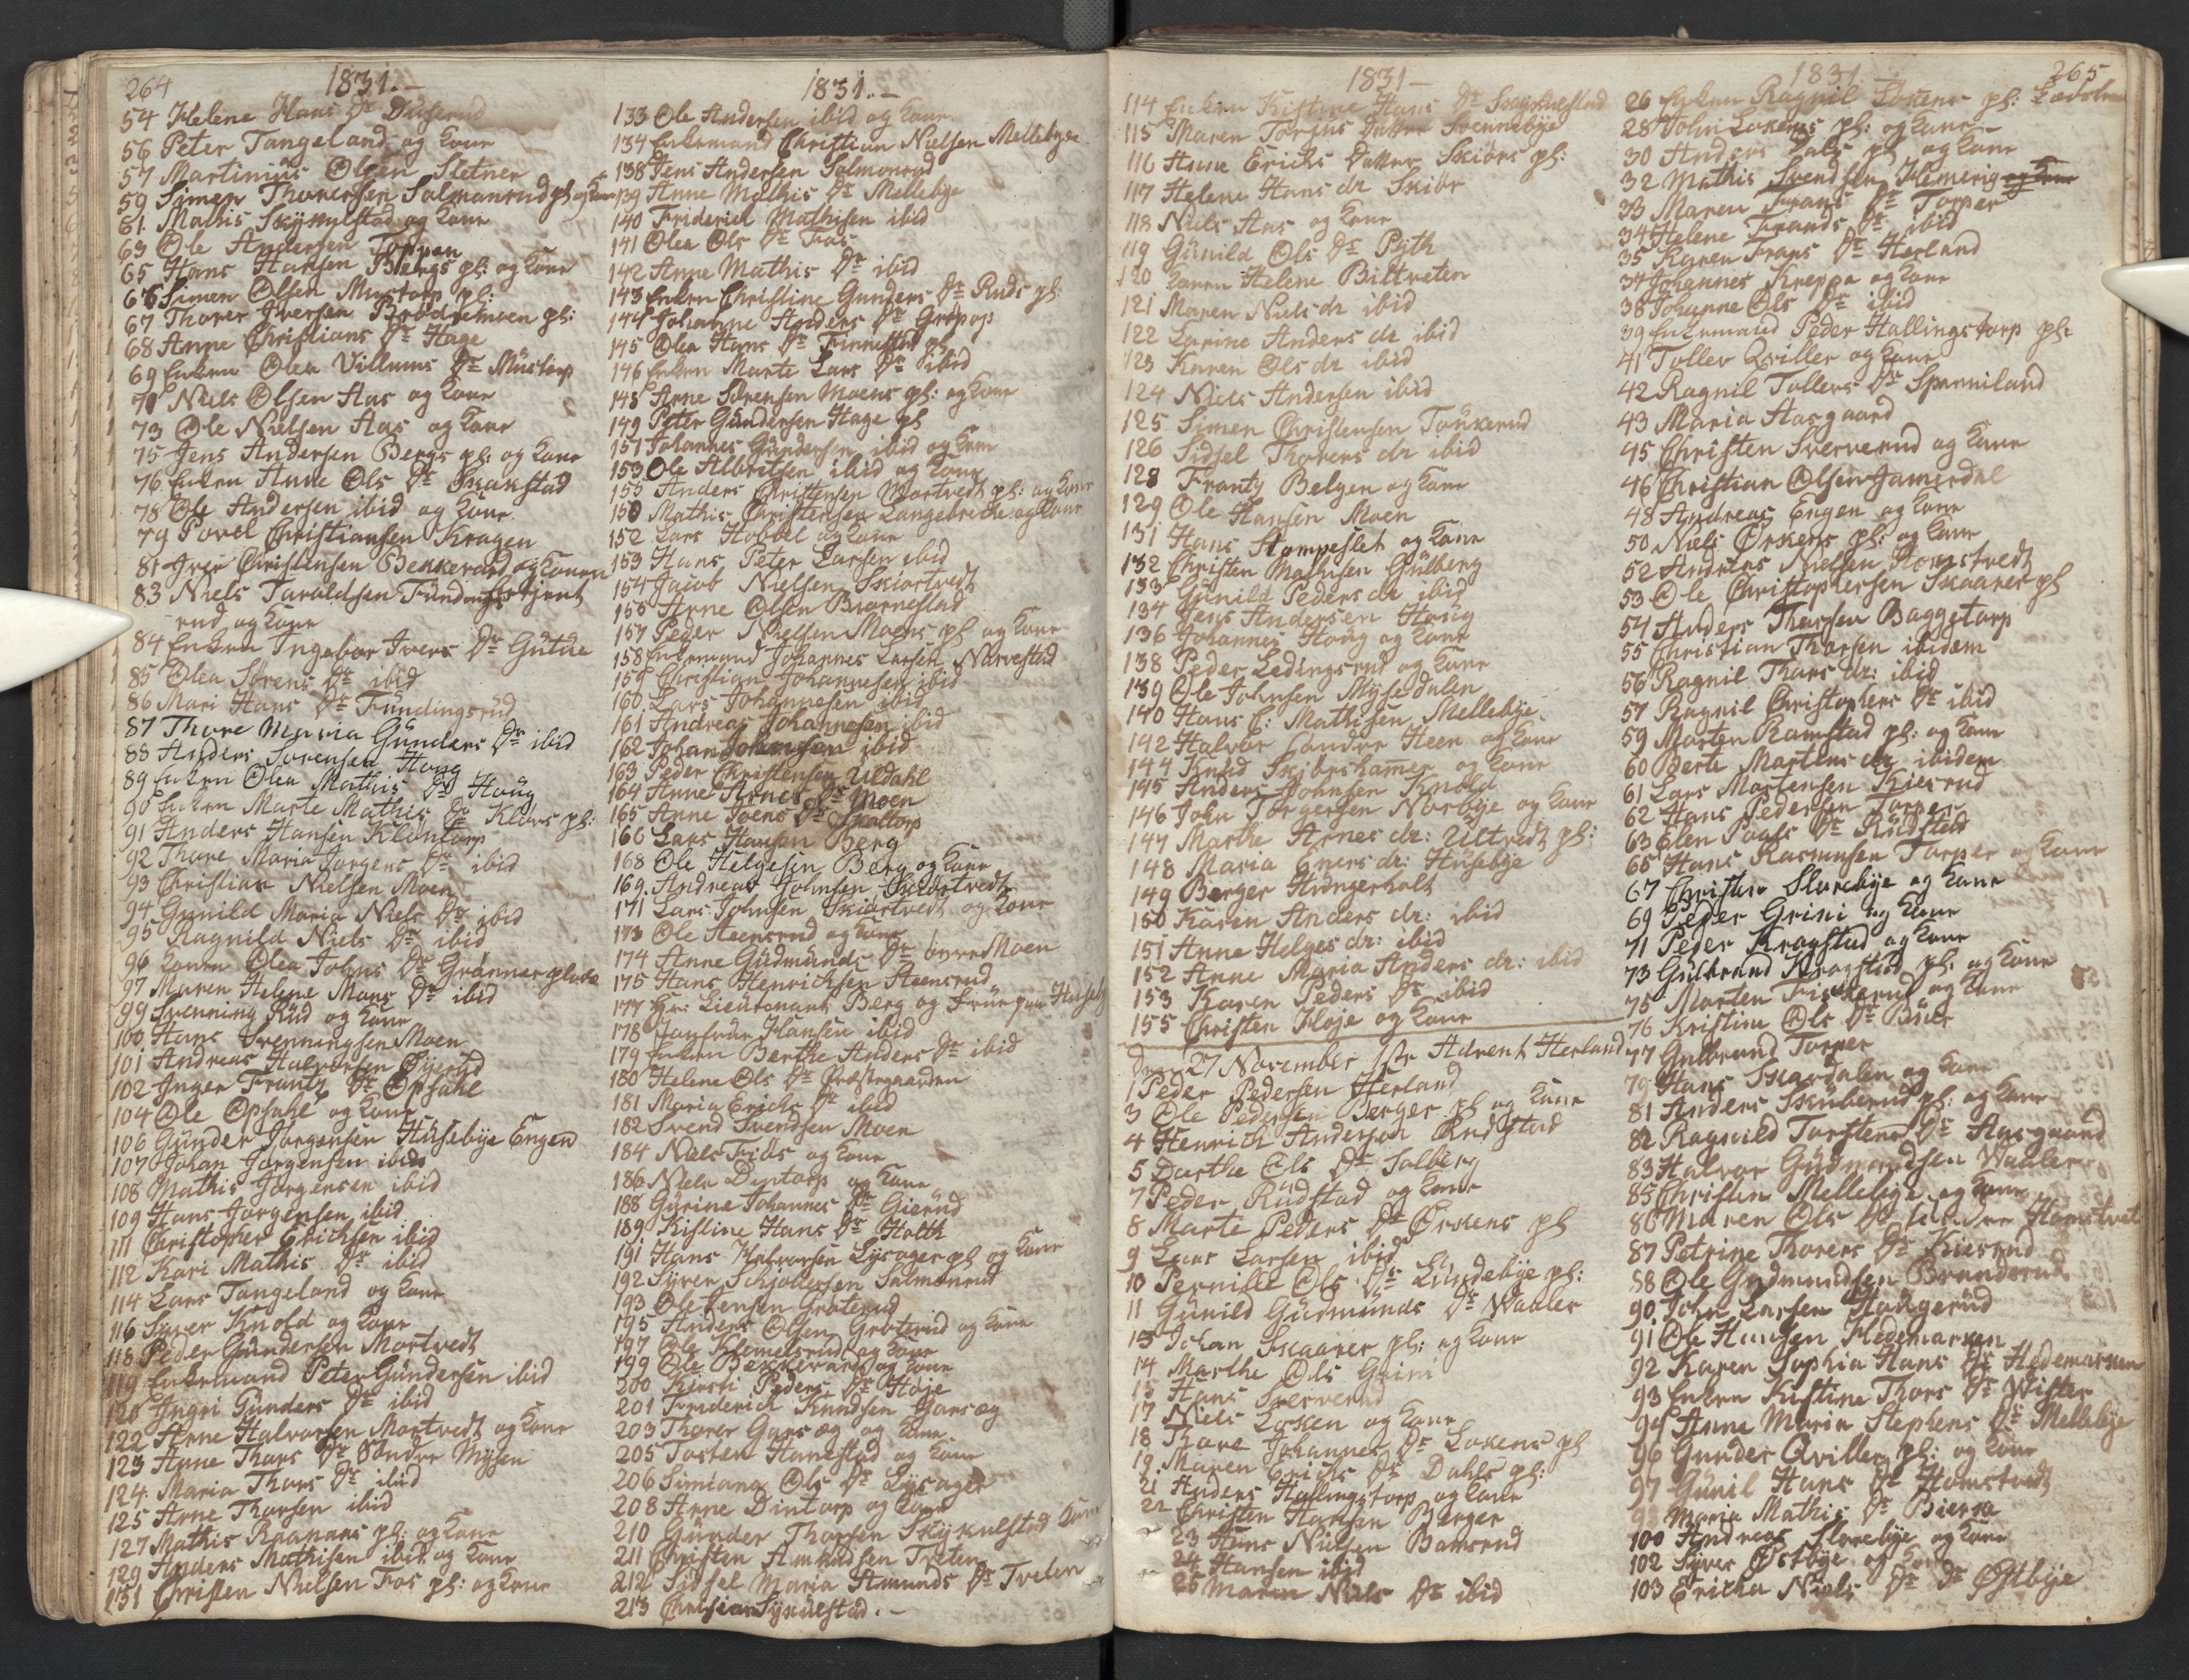 264
1831.-
54 Helene Hans Dr
56 Peter Tangeland og Kone
57 Martinius Olsen Sletner
59 Simen Thorersen Salmonrud pl og Kone
61 Mathis Skÿkulstad og Kone
63 Ole Andersen Toppen
65 Hans Hansen Bergs pl: og Kone
66 Simen Olsen Mustorp pl:
67 Thorer Iversen Brödremoen pl:
68 Anne Christians Dr Hage
69 Enken Olea Villums Dr Müstorp
71 Niels Olsen Aas og Kone
73 Ole Nielsen Aas og Kone
75 Jens Andersen Bergs pl: og Kone
76 Enken Anne Ols Dr Skakstad
78 Ole Andersen ibid og Kone
79 Povel Christiansen Kragen
81 Iver Christensen Bekkevard og Konen
83 Niels Taraldsen
rud og Kone
84 Enken Ingebor Ivers Dr Gutue
85 Olea Sörens Dr ibid
86 Mari Hans Dr Fündingsrüd
87 Thore Maria Günders Dr ibid
88 Anders Sorensen Houg
89 Enken Olea Mathis Dr Houg
90 Enken Marte Mathis Dr Klövs pl:
91 Anders Hansen Klontorp
92 Thore Maria Jorgens Dr ibid
93 Christian Nielsen Moen
94 Gunild Maria Niels Dr ibid
95 Ragnild Niels Dr ibid
96 Konen Olea Johns Dr
97 Maren Helene Mons Dr ibid
99 Svenning Rüd og Kone
100 Hans Svenningsen Moen
101 Andreas Halvorsen
102 Inger Frantz Dr Opsahl
104 Ole Opsahl og Kone
106 Günder Jorgensen Hüsebÿe Engen
107 Johan Jorgensen ibid
108 Mathis Jorgensen ibid
109 Hans Jorgensen ibid
111 Christopher Erichsen ibid
112 Kari Mathis Dr ibid
114 Lars Tangeland og Kone
116 Syver Knold og Kone
118 Peder Gundersen Mortvedt
119 Enkemand Peter Gündersen ibid
120 Ingri Gunders Dr ibid
122 Arne Halvorsen Mortvedt og Kone
123 Anne Thors Dr Söndre Mysen
124 Maria Thors Dr ibid
125 Arne Thorsen ibid
127 Mathis Raanaas pl: og Kone
129 Anders Mathisen ibid og Kone
131 Christen Nielsen Fos pl: og Kone
1831.-
133 Ole Andersen ibid og Kone
134 Enkemand Christian Nielsen Mellebye
138 Jens Andersen Salmonrud
139 Anne Mathis Dr Mellebye
140 Friderich Mathisen ibid
141 Olea Ols Dr Fos
142 Anne Mathis Dr ibid
143 Enken Christine Gunders Dr Ruds pl:
144 Johanne Anders Dr
145 Olea Hans Dr
146 Enken Marte Lars Dr ibid
148 Arne Sörensen Moens pl: og Kone
149 Peter Gündersen Hage pl
151 Johannes Gündersen ibid og Kone
153 Ole Albritsen ibid og Kone
155 Anders Christensen Mortvedt pl: og Kone
150 Mathis Christensen Langebrecke og Kone
152 Lars Hobbel og Kone
153 Hans Peter Larsen ibid
154 Jacob Nielsen Skiortvedt
155 Arne Olsen Biornestad
157 Peder Nielsen Moens pl og Kone
158 Enkemand Johannes Larsen Narvestad
159 Christian Johannesen ibid
160 Lars Johannesen ibid
161 Andreas Johannesen ibid
162 Johan ibid
163 Peder Christensen Uldahl
164 Anne Arnes Dr Moen
165 Anne Ivers Dr
166 Lars Hansen Berg
168 Ole Helgesen Berg og Kone
169 Andreas Johnsen Skiortvedt
171 Lars Johnsen Skiortvedt og Kone
173 Ole Steensrud og Kone
174 Anne Gudmünds Dr övre Moen
175 Hans Henrichsen Steensrud
177 Hr: Lieutenant Berg og Frue paa
178 Jomfrue Hansen ibid
179 Enken Berthe Anders Dr ibid
180 Helene Ols Dr Præstegaarden
181 Maria Erichs Dr ibid
182 Svend Svendsen Moen
184 Niels Friis og Kone
186 Niels Dintorp og Kone
188 Gürine Johannes Dr Gierüd
189 Kistine Hans Dr Holth
191 Hans Halvorsen Lysager pl og Kone
192 Syver Salmonrud
193 Ole Jensen Groterud
195 Anders Olsen Groterud og Kone
197 Ole Klemetsrud og Kone
199 Ole Bekkevard og Kone
200 Kirsti Peders Dr Höje
201 Friderich Knudsen Garseg
203 Thorer Garseg og Kone
205 Torsten Hanestad og Kone
206 Simiana Ols Dr Lysager
208 Arne Dintorp og Kone
210 Günder Thorsen Skÿkulstad Kone
211 Christen Amundsen Treten
212 Sidsel Maria Amunds Dr Treten
213 Christian Sykulstad.-
1831-
114 Enken Kistine Hans Dr Skÿkulstad
115 Maren Torjus Datter Svennebÿe
116 Anne Erichs Datter Skiörs pl:
117 Helene Hans dr Skiör
118 Niels Aas og Kone
119 Günild Ols Dr
120 Konen Helene Biltveten
121 Maren Niels dr ibid
122 Larine Anders dr ibid
123 Karen Ols dr ibid
124 Niels Andersen ibid
125 Simen Christensen
126 Sidsel Thorers dr ibid
128 Frantz Belgen og Kone
129 Ole Hansen Moen
131 Hans Stompeslet og Kone
132 Christen Mathisen Gülberg
133 Günild Peders dr ibid
134 Jens Andersen Houg
136 Johannes Houg og Kone
138 Peder Ledingsrud og Kone
139 Ole Johnsen Mÿsedalen
140 Hans C: Mathisen Mellebÿe
142 Halvor Söndre Heen og Kone
144 Knud Skiörshamer og Kone
145 Anders Johnsen Knold
146 John Torgersen Norbÿe og Kone
147 Marthe Arnes dr: Ultvedt pl:
148 Maria Eners dr: Husebÿe
149 Berger Hüngerholt
150 Karen Anders dr: ibid
151 Anne Helges dr: ibid
152 Anne Maria Anders dr: ibid
153 Karen Peders Dr ibid
155 Christen Höje og Kone
Den 27 November 1ste Advent Herland
1 Peder Pedersen Herland
3 Ole Pedersen Berger pl og Kone
4 Henrich Andersen Rudstad
5 Dorthe Ols Dr Solberg
7 Peder Rüdstad og Kone
8 Marte Peders Dr Örkens pl
9 Lars Larsen ibid
10 Pernille Ols Dr Lündebÿe pl:
11 Günild Gudmunds Dr Waaler
13 Johan Skaarer pl: og Kone
14 Marthe Ols Grini
15 Hans Sververud
17 Niels Löken og Kone
18 Thore Johannes Dr Lökens pl
19 Maren Erichs Dr Dahls pl:
21 Anders Hallingstorp og Kone
22 Christen Hansen Berger
23 Hans Nielsen Bamsrud
24 Hansen ibid
25 Maren Niels Dr ibid
1831.
265
26 Enken Ragnil Lökens pl:
28 John Lökens pl: og Kone
30 Anders Dals pl og Kone
32 Mathis Svendsen Hemerig og Kone
33 Maren Frans Dr Torper
34 Helene Frands Dr ibid
35 Karen Frans Dr Herland
37 Johannes Kreppa og Kone
38 Johanne Ols Dr ibid
39 Enkemand Peder Hallingstorp pl:
41 Toller Qviller og Kone
42 Ragnil Tollers Dr Spanniland
43 Maria Aasgaard
45 Christen Sververud og Kone
46 Christian Olsen Jamerdal
48 Andreas Engen og Kone
50 Niels Örkens pl: og Kone
52 Andreas Nielsen Homstvedt
53 Ole Christophersen Skaarer pl
54 Anders Thorsen Baggetorp
55 Christian Thorsen ibidem
56 Ragnil Thors dr: ibid
57 Ragnil Christophers Dr ibid
59 Morten Ramstad pl: og Kone
60 Berte Martens dr ibidem
61 Lars Mortensen Kiesrud
62 Hans Pedersen Torper
63 Elen Povels Dr Rüdstad
65 Hans Rasmusen Torper og Kone
67 Christen Slorebÿe og Kone
69 Peder Grini og Kone
71 Peder Kragstad og Kone
73 Gulbrand Kragstad pl: og Kone
75 Morten Fiskerud og Kone
76 Kristine Ols Dr
77 Gulbrand Torper
79 Hans Skardalen og Kone
81 Anders Skuberud pl: og Kone
82 Ragnild Torstens Dr Aasgaard
83 Halvor Gudmundsen Waaler
85 Christen Mellebye og Kone
86 Maren Ols Dr Söndre Homstvet
87 Petrine Thorers Dr Kiesrud
88 Ole Gudmundsen Brandsrud
90 John Larsen Haugerüd
91 Ole Hansen Hedemarken
92 Karen Sophia Hans Dr Hedemarken
93 Enken Kistine Thors Dr Wister
94 Anne Maria Stephens Dr Mellebye
96 Gunder Qviller pl: og Kone
97 Günil Hans Dr Homstvedt
98 Maria Mathis Dr Bierra
100 Andreas Slorebÿe og Kone
102 Syver Östbÿe og Kone
103 Ericha Niels Dr Dr Östbÿe